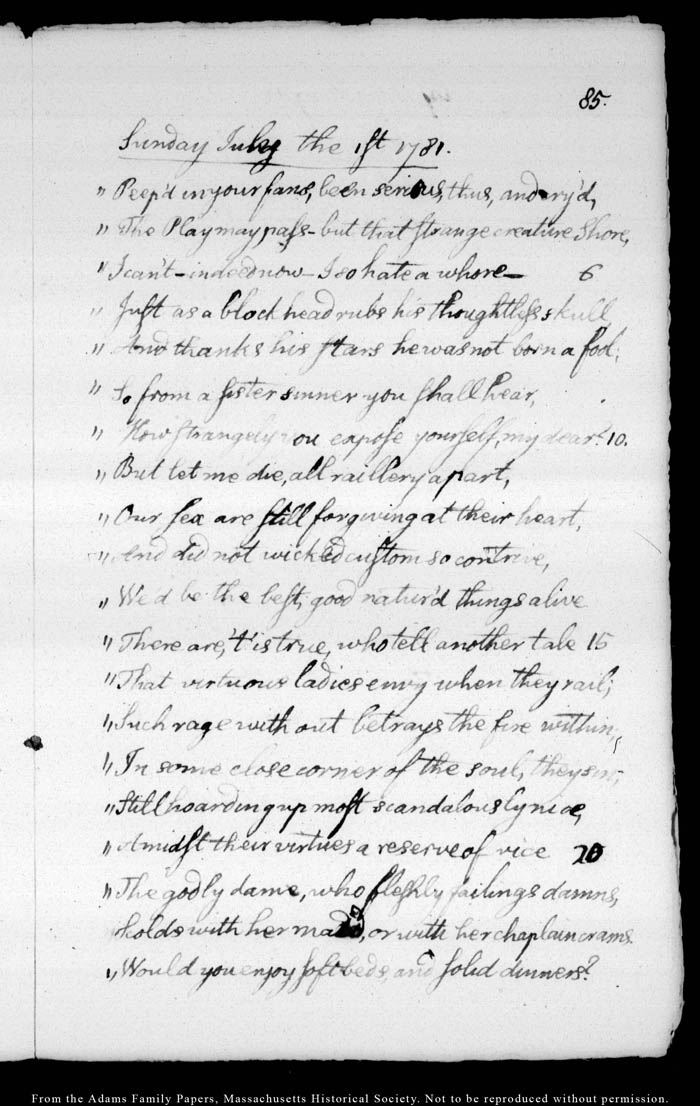 85.
Sunday July the 1st 1781.
" Peep'd in your fans, been serious, thus, and cry'd,
" The Play may pass - but that strange creature Shore,
" I can't - indeed now - I so hate a whore - 6
" Just as a blockhead rubs his thoughtless skull
" And thanks his stars he was not born a fool;
" So from a sister sinner you shall hear,
" How strangely you expose yourself, my dear? 10.
" But let me die, all raillery apart,
" Our sex are still forgiving at their heart,
" And did not wicked custom so contrive,
" We'd be the best, good natur'd things alive
" There are, 't'is true, who tell another tale 15
" That virtuous ladies envy when they rail;
" Such rage without betrays the fire within;
" In some close corner of the soul, they sin;
" Still hoarding up most scandalously nice,
" Amidst their virtues a reserve of vice 20
" The godly dame, who fleshly failings damns,
Scolds with her maid, or with her chaplain crams.
" Would you enjoy soft beds, and solid dinners?
From the Adams Family Papers, Massachusetts Historical Society. Not to be reproduced without permission.